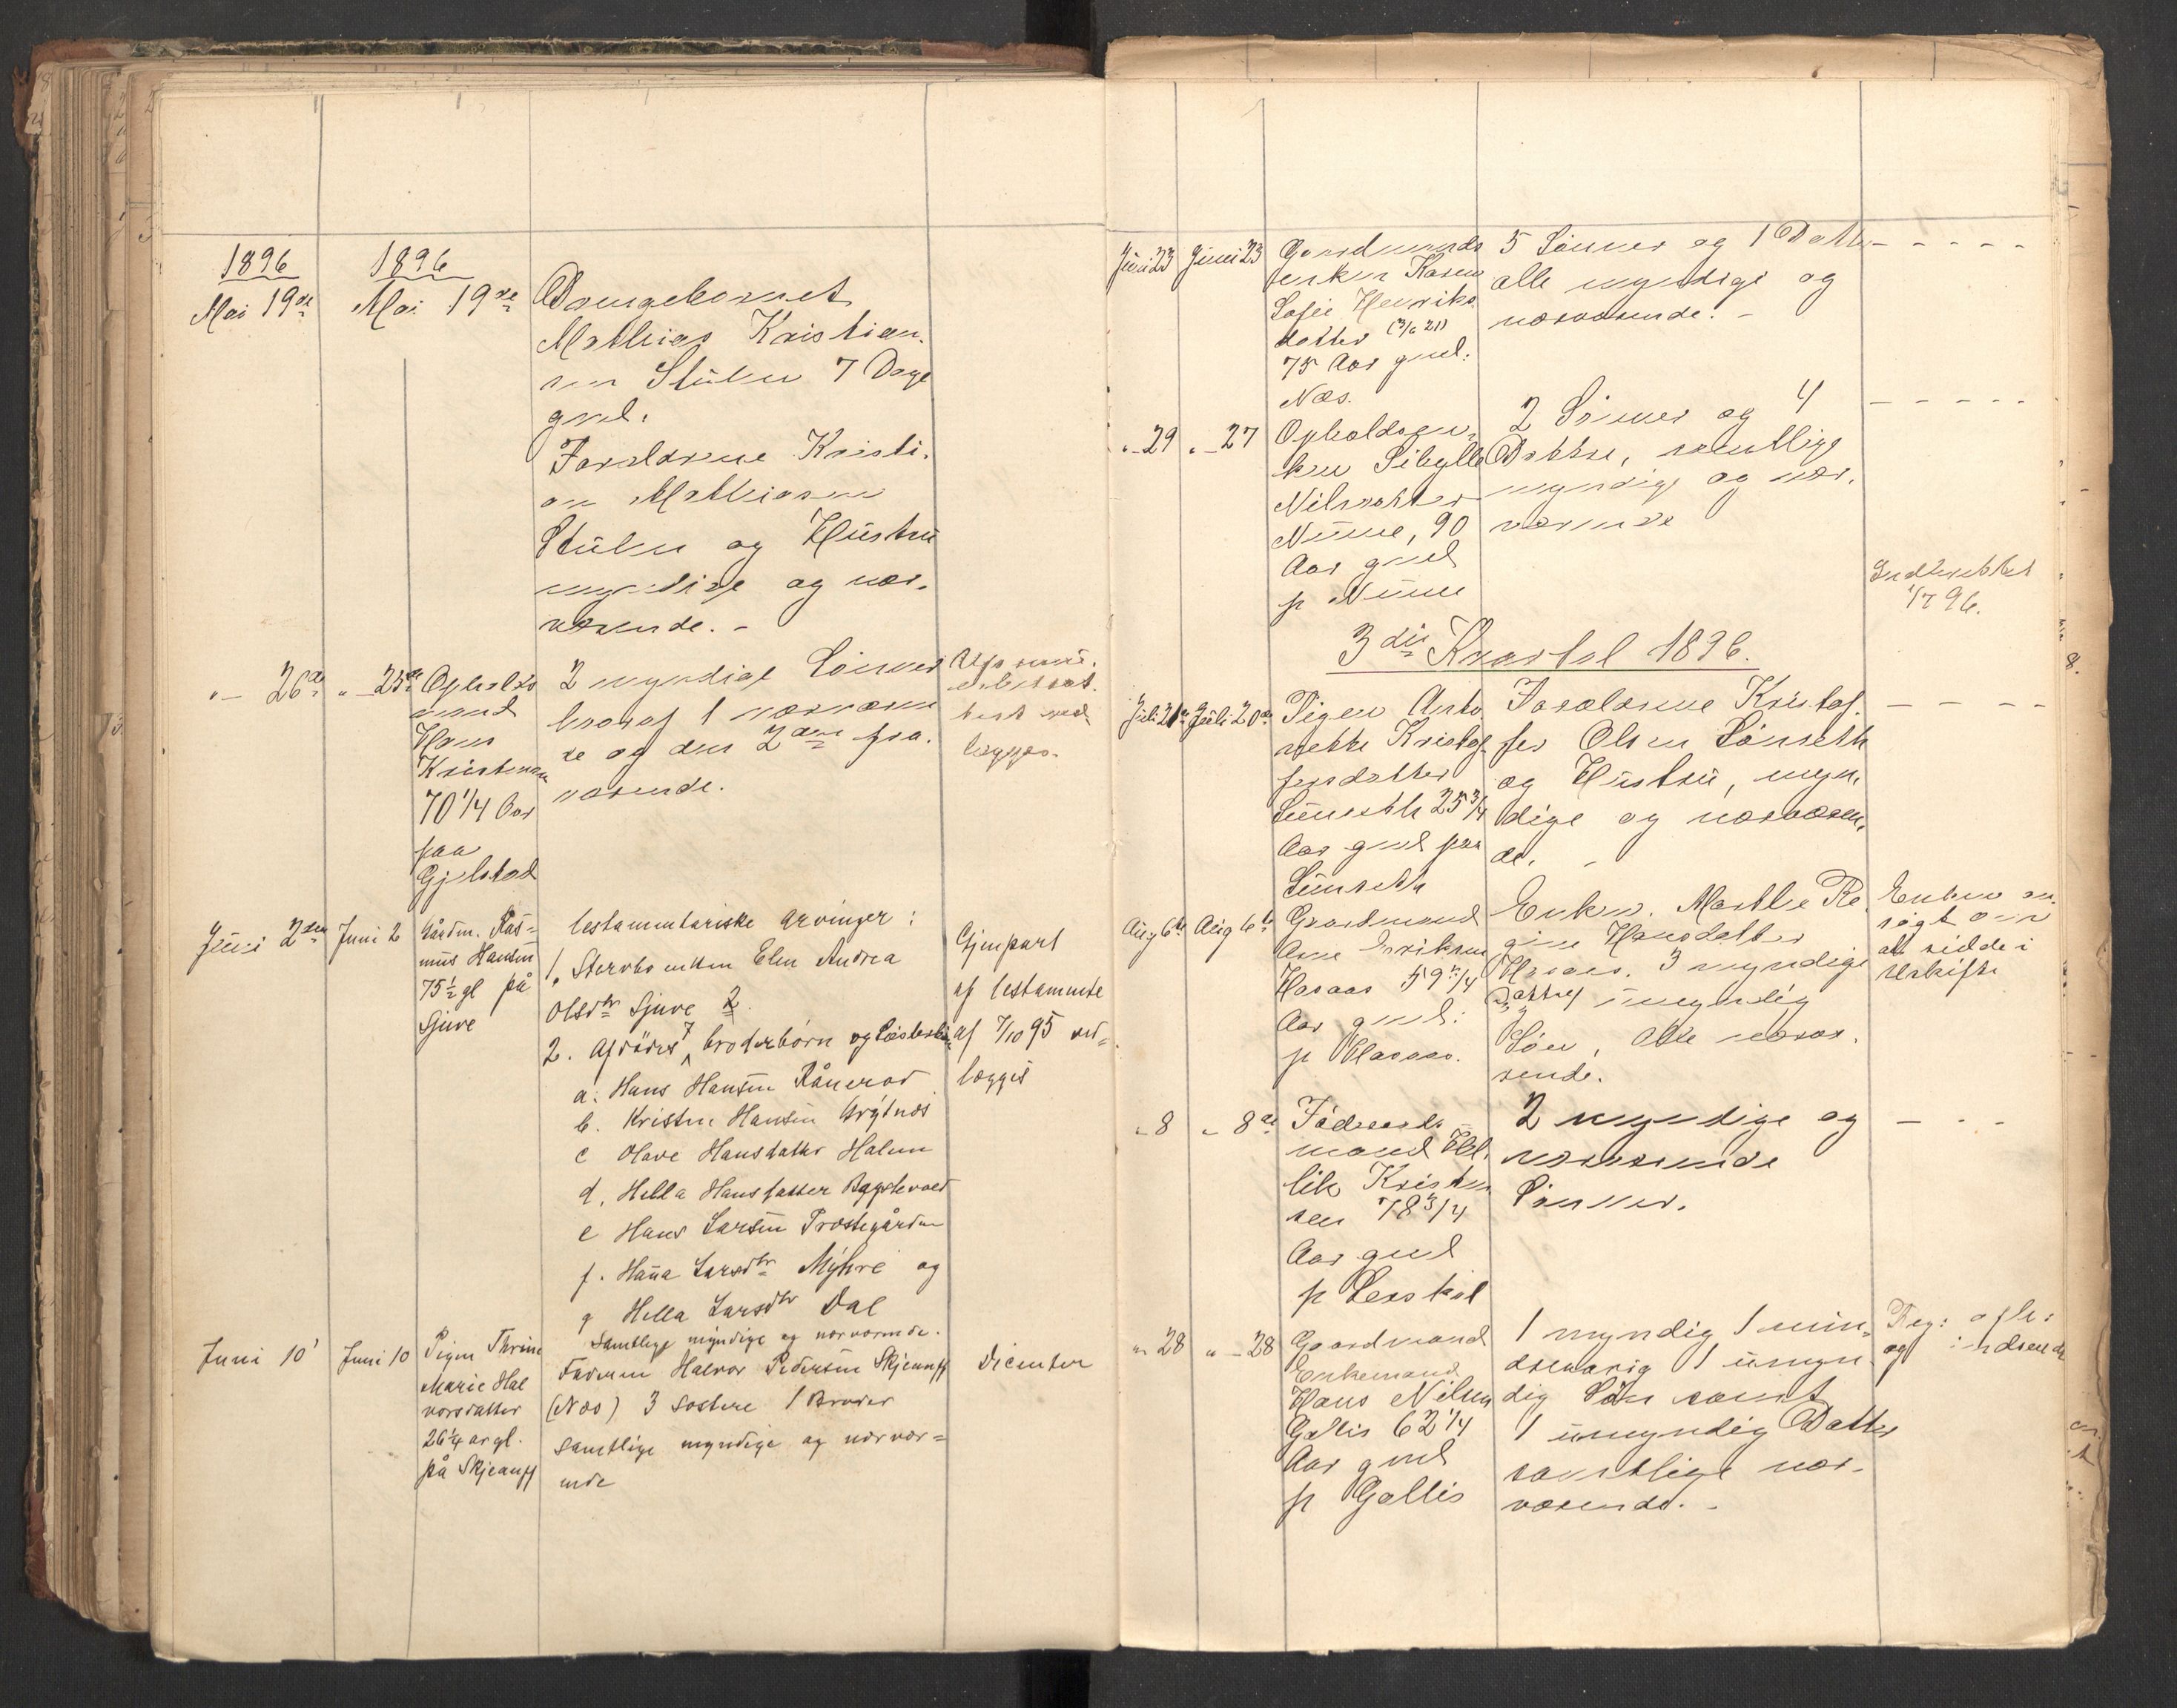 1896
1896
Mai 19de
Mai 19de
Drengebarnet
Mathias Kristian-
sen Stulen 7 Dage
gml.
Forældrene Kristi-
an Mathiasen
Stulen og Hustru
myndige og nær-
værende. -
"- 26de
"- 25de
Opholds
mand
Hans
Kristensen
70 1/4 Aar
paa
Gjelstad
2 myndige Sönner
hvoraf 1 nærværen
de og den 2den fra-
værende.
vedlægges.
Juni 2den
Juni 2
Gårdm. Ras=
mus Hansen
75 1/2 gl på
Sjuve
testamentariske arvinger:
1. Sterbo enken Elen Andrea
Olsdtr Sjuve
2. Afdødes 7 broderbörn og Søsterbörn
a. Hans Hansen Rånerod
b. Kristen Hansen Grýtnæs
c Olave Hansdatter Holmen
d. Hella Hansdatter
e Hans Larsen Prestegården
f. Hana Larsdtr Mýhre og
g Hella Larsdtr Dal
Samtlige myndige og nærværende.
Gjenpart
af testamente
af 7/10 95 ved=
lægges
Juni 10
Juni 10
Pigen Thrine
Marie Hal
vorsdatter
26 1/4 ar gl.
på Skjeauff
Faderen Halvor Pedersen Skjeauff
(Næs) 3 Søstere 1 Broder
Samtlige myndige og nærvær=
ende
Juni 23
Juni 23
Gaardmands
enken Karen
Sofie Henriks
datter (3/6 21)
75 Aar gml:
Næs.
5 Sönner og 1 Datter
alle myndige og
nærværende. -
- - - - -
"- 29
"- 27
Opholdsen-
ken Sibylle
Nilsdatter
Numme, 90
Aar gml
p Numme
2 Sönner og 4
Døttre, samtlige
myndige og nær-
værende
- - - - -
Indberettet
1/7 96.
3die Kvartal 1896.
Juli 21de
Juli 20de
Pigen Anto
nette Kristof-
fersdatter
Sünseth 25 3/4
Aar gml paa
Sünseth
Forældrene Kristof-
fer Olsen Sünseth
og Hustru, myn-
dige og nærværen-
de. -
- - - -
Aug 6te
Aug 6te
Gaardmand
Arne Eriksen
Haraas 59 3/4
Aar gml:
p Haraas.
Enken Marthe Re
gine Hansdatter
Haraas. 3 myndige
Døttre umyndig
Sön, Alle nærvæ-
rende.
Enken an-
søgt om
at sidde i
Uskifte
"- 8
"- 8de
Föderaads-
mand
Kristen
sen 78 3/4
Aar gml
p Lerskal
2 myndige og
nærværende
Sönner.
- - -
"- 28
"- 28
Gaardmand
Enkemand
Hans Nilsen
Gallis 62 1/4
Aar gml
p Gallis
1 myndig 1 min-
dreaarig 1 umyn
dig Sön samt
1 umyndig Datter
samtlige nær-
værende. -
Reg:
og